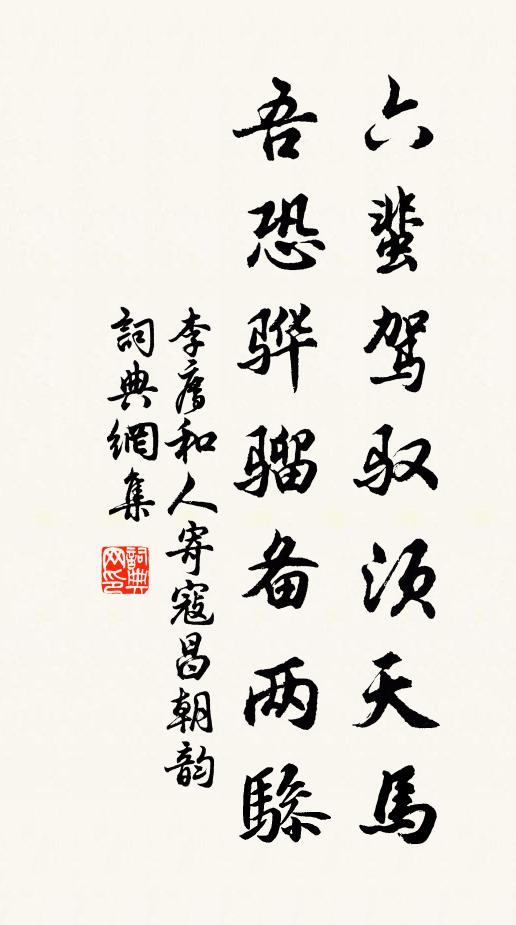 六蜚驾驭须天馬
吾恐骅骝备两驂
李廌和人寄寇昌朝韵
詞典網集
詞典网印